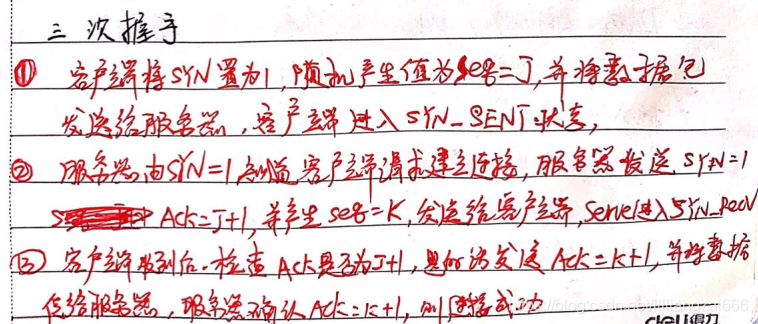 三次握手
① 客户端将SYN置为1,随机产生值为seq=J,并将数据包
发送给服务器,客户端进入SYN_SENT状态,
② 服务器由SYN=1知道客户端请求建立连接,服务器发送SYN=1
Ack=J+1,并产生seq=K,发送给客户端,Server进入SYN_RECV
③ 客户端收到后.检查Ack是否为J+1,是的话发送Ack=K+1,并将数据
传给服务器,服务器确认Ack=K+1,则连接成功
deli得力